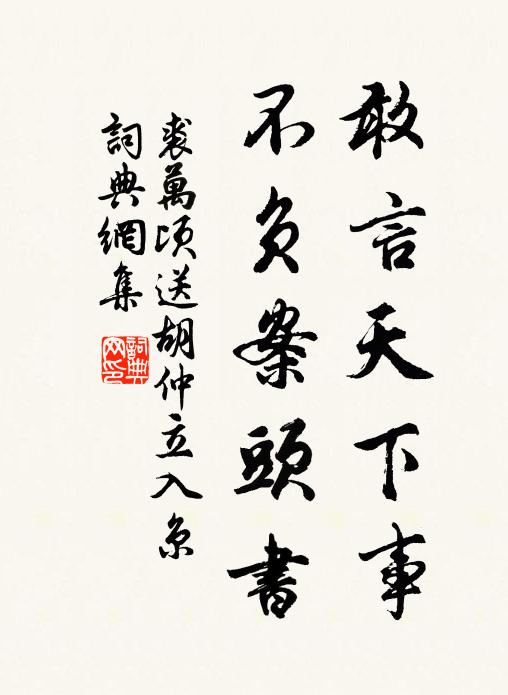 敢言天下事
不負案頭書
裘萬頃送胡仲立入京
詞典網集
詞典
网印